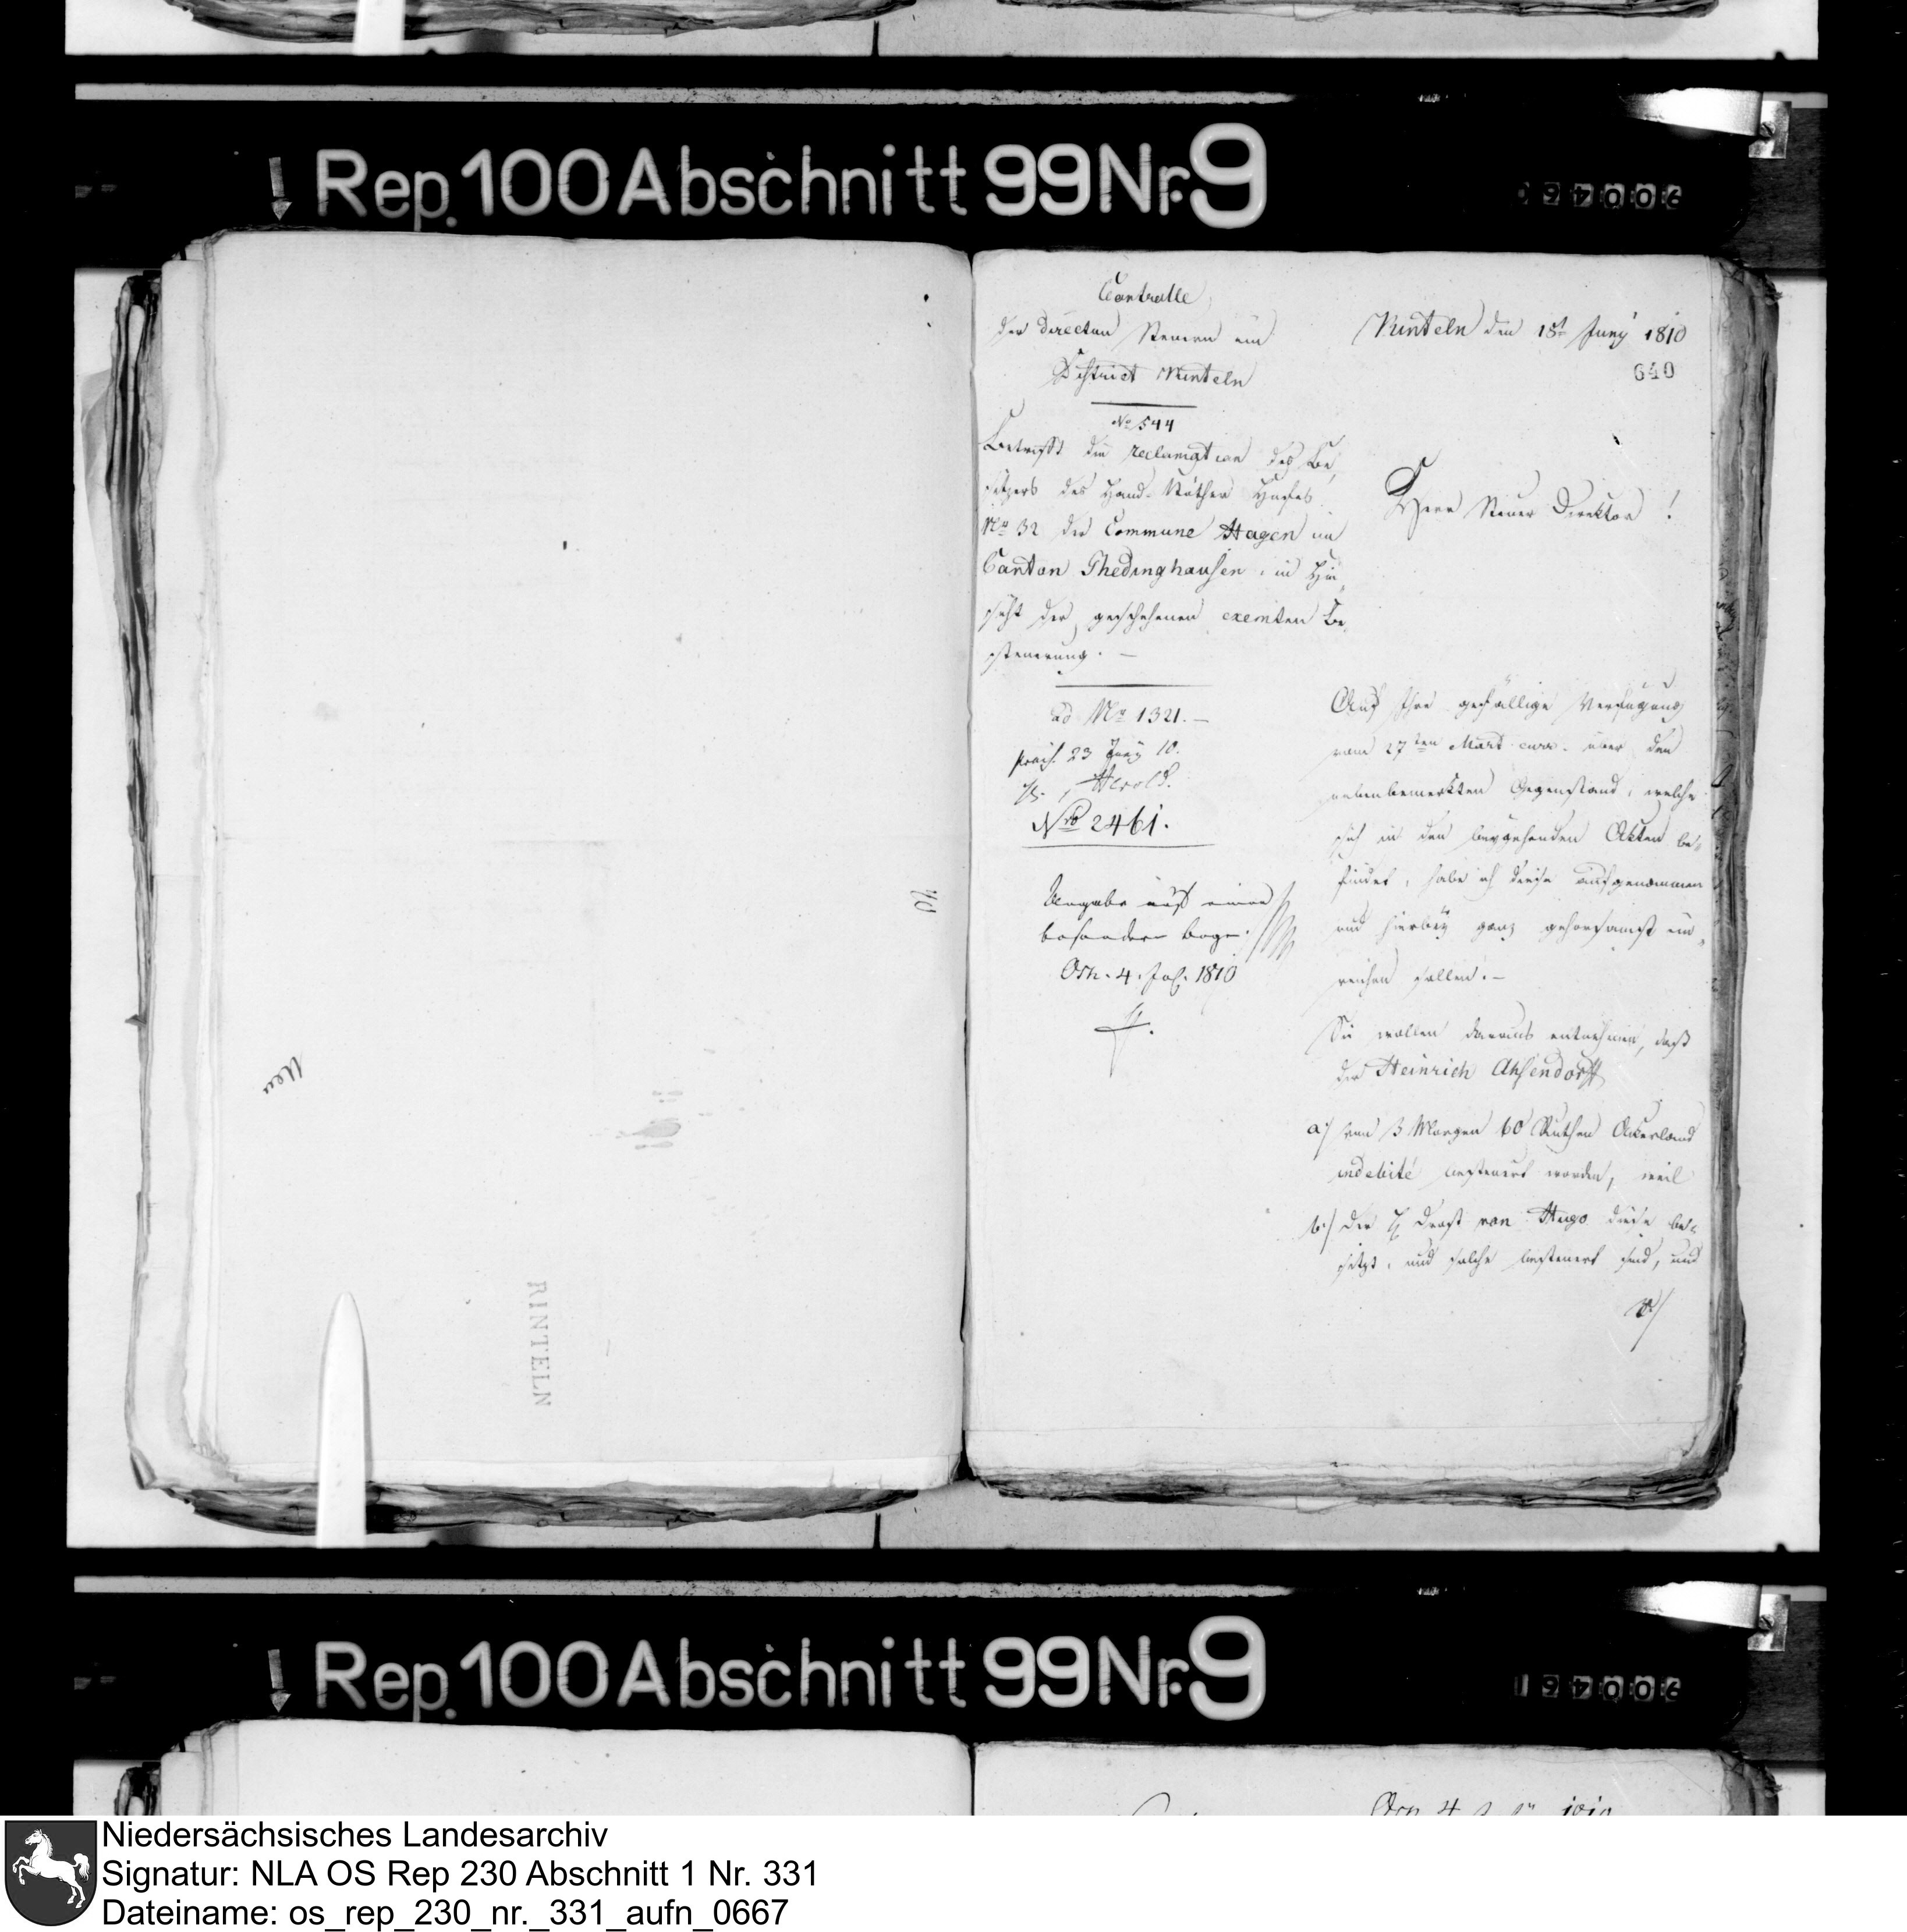 Rep. 100 Abschnitt 99 Nr. 9
Neu
RINTELN
Controlle
der directen Steuern im
District Rinteln
No 544
Betrifft die reclamation des Be,
sitzers des Hofes
No 32 der Commune Hagen im
Canton Thedinghausen, in Hin,
sicht der geschehenen exemten Be,
steuerung. —
ad No 1321. —
praes. 23 Juny 10.
Herold.
Nro 2461.
Angabe auf einem
besondern Bogen.
Osn. 4. Jul. 1810
Rinteln den 18t Juny 1810
640
Herr Steuer Direktor !
Auf Ihre gefällige Verfügung
vom 27ten Mart. curr. über den
nebenbemerkten Gegenstand, welche
sich in den beygehenden Akten be,
findet, habe ich diese aufgenommen
und hierbey ganz gehorsamst ein,
reichen sollen. —
Sie wollen daraus entnehmen, daß
der Heinrich Ahsendorff
a./ von 3 Morgen 60 Ruthen Ackerland
indebité besteuert worden, weil
b./ der Drost von Hugo diese be,
sitzt, und solche besteuert sind, und
Rep. 100 Abschnitt 99 Nr. 9
Niedersächsisches Landesarchiv
Signatur: NLA OS Rep 230 Abschnitt 1 Nr. 331
Dateiname: os_rep_230_nr._331_aufn_0667